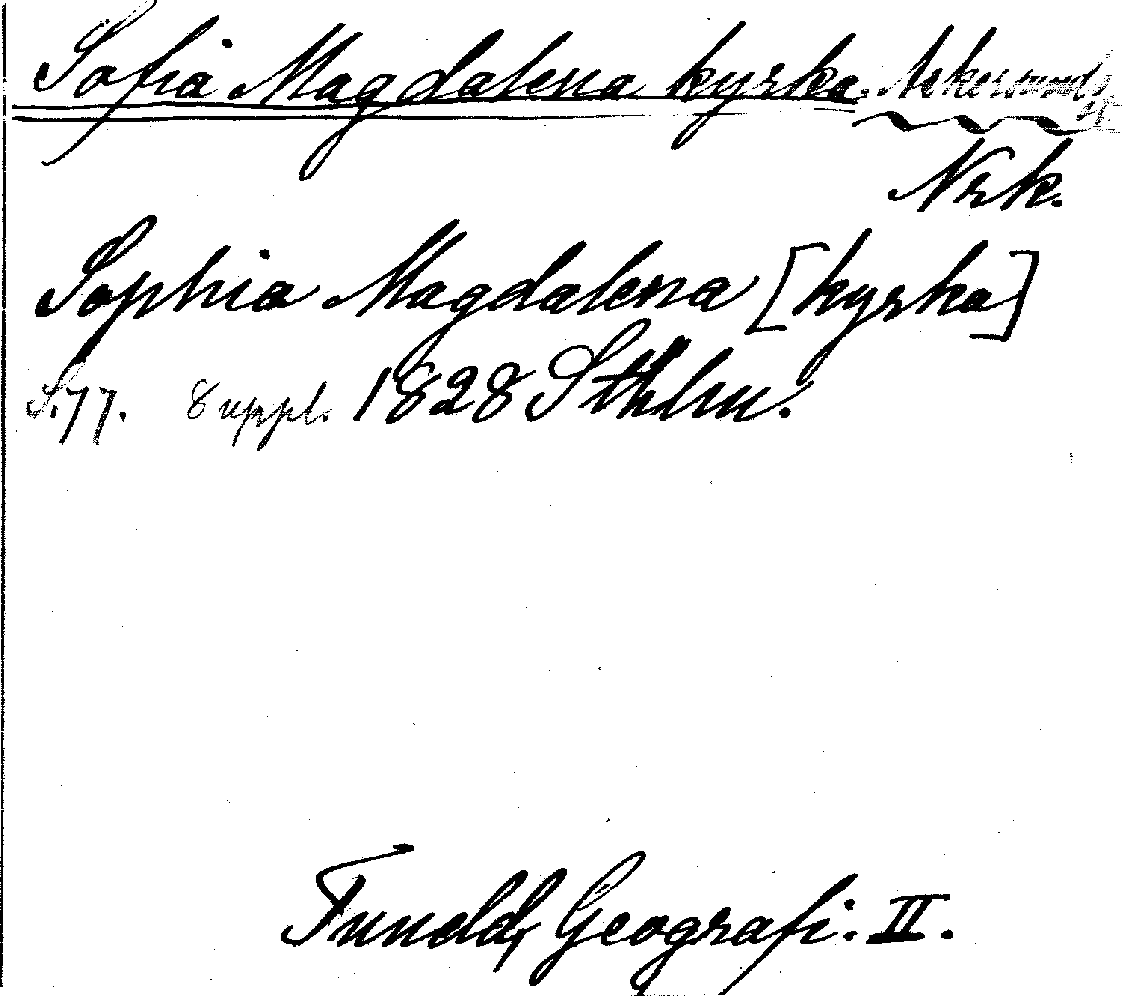 Sofia Magdalena kyrka. Askersunds
Nrk.
Sophia Magdalena [kyrka]
S. 77. 8 uppl. 1828 Sthlm.
Tuneld, Geografi. II.